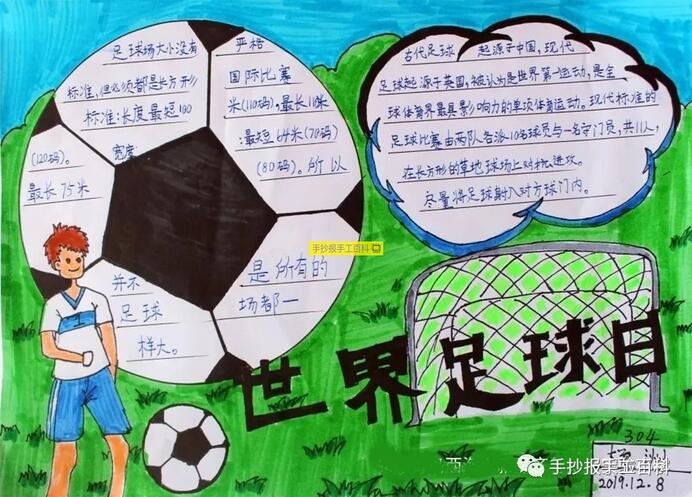 足球场大小没有
严格
标准,但必须都是长方形
国际比赛
标准:长度最短100
米(110码),最长110米
(120码)。
宽度
:最短64米(70码)
最长75米
(80码)。所以
并不
是所有的
足球
场都一
样大。
古代足球 起源于中国,现代
足球起源于英国,被认为是世界第一运动,是全
球体育界最具影响力的单项体育运动。现代标准的
足球比赛由两队各派10名球员与一名守门员,共11人,
在长方形的草地球场上对抗、进攻。
尽量将足球射入对方球门内。
手抄报手工百科
世界足球日
304
2019.12.8
手抄报手工百科